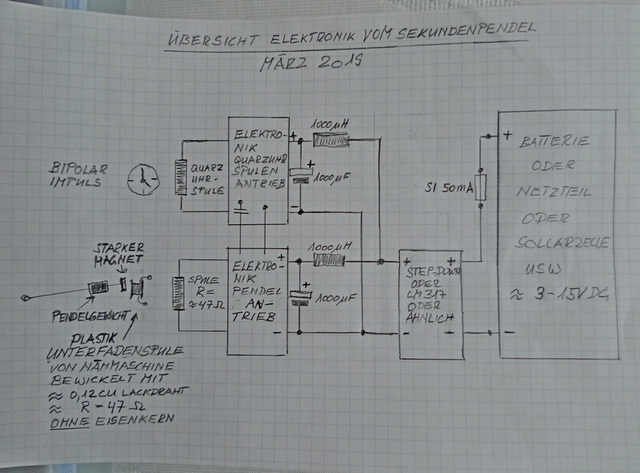 ÜBERSICHT ELEKTRONIK VOM SEKUNDENPENDEL
MÄRZ 2019
BIPOLAR
IMPULS
QUARZ
UHR-
SPULE
ELEKTRO-
NIK
QUARZUHR
SPULEN
ANTRIEB
+
-
1000µH
+
1000µF
STARKER
MAGNET
PENDELGEWICHT
PLASTIK
UNTERFADENSPULE
VON NÄHMASCHINE
BEWICKELT MIT
≈ 0,12CU LACKDRAHT
≈ R-47 Ω
OHNE EISENKERN
SPULE
R=
≈47Ω
ELEKTRO-
NIK
PENDEL
AN-
TRIEB
+
-
1000µH
+
1000µF
+ +
STEP-DOWN
ODER
LM317
ODER
ÄHNLICH
- -
SI 50mA
+
BATTERIE
ODER
NETZTEIL
ODER
SOLLARZELLE
USW
≈ 3-15V DC
-